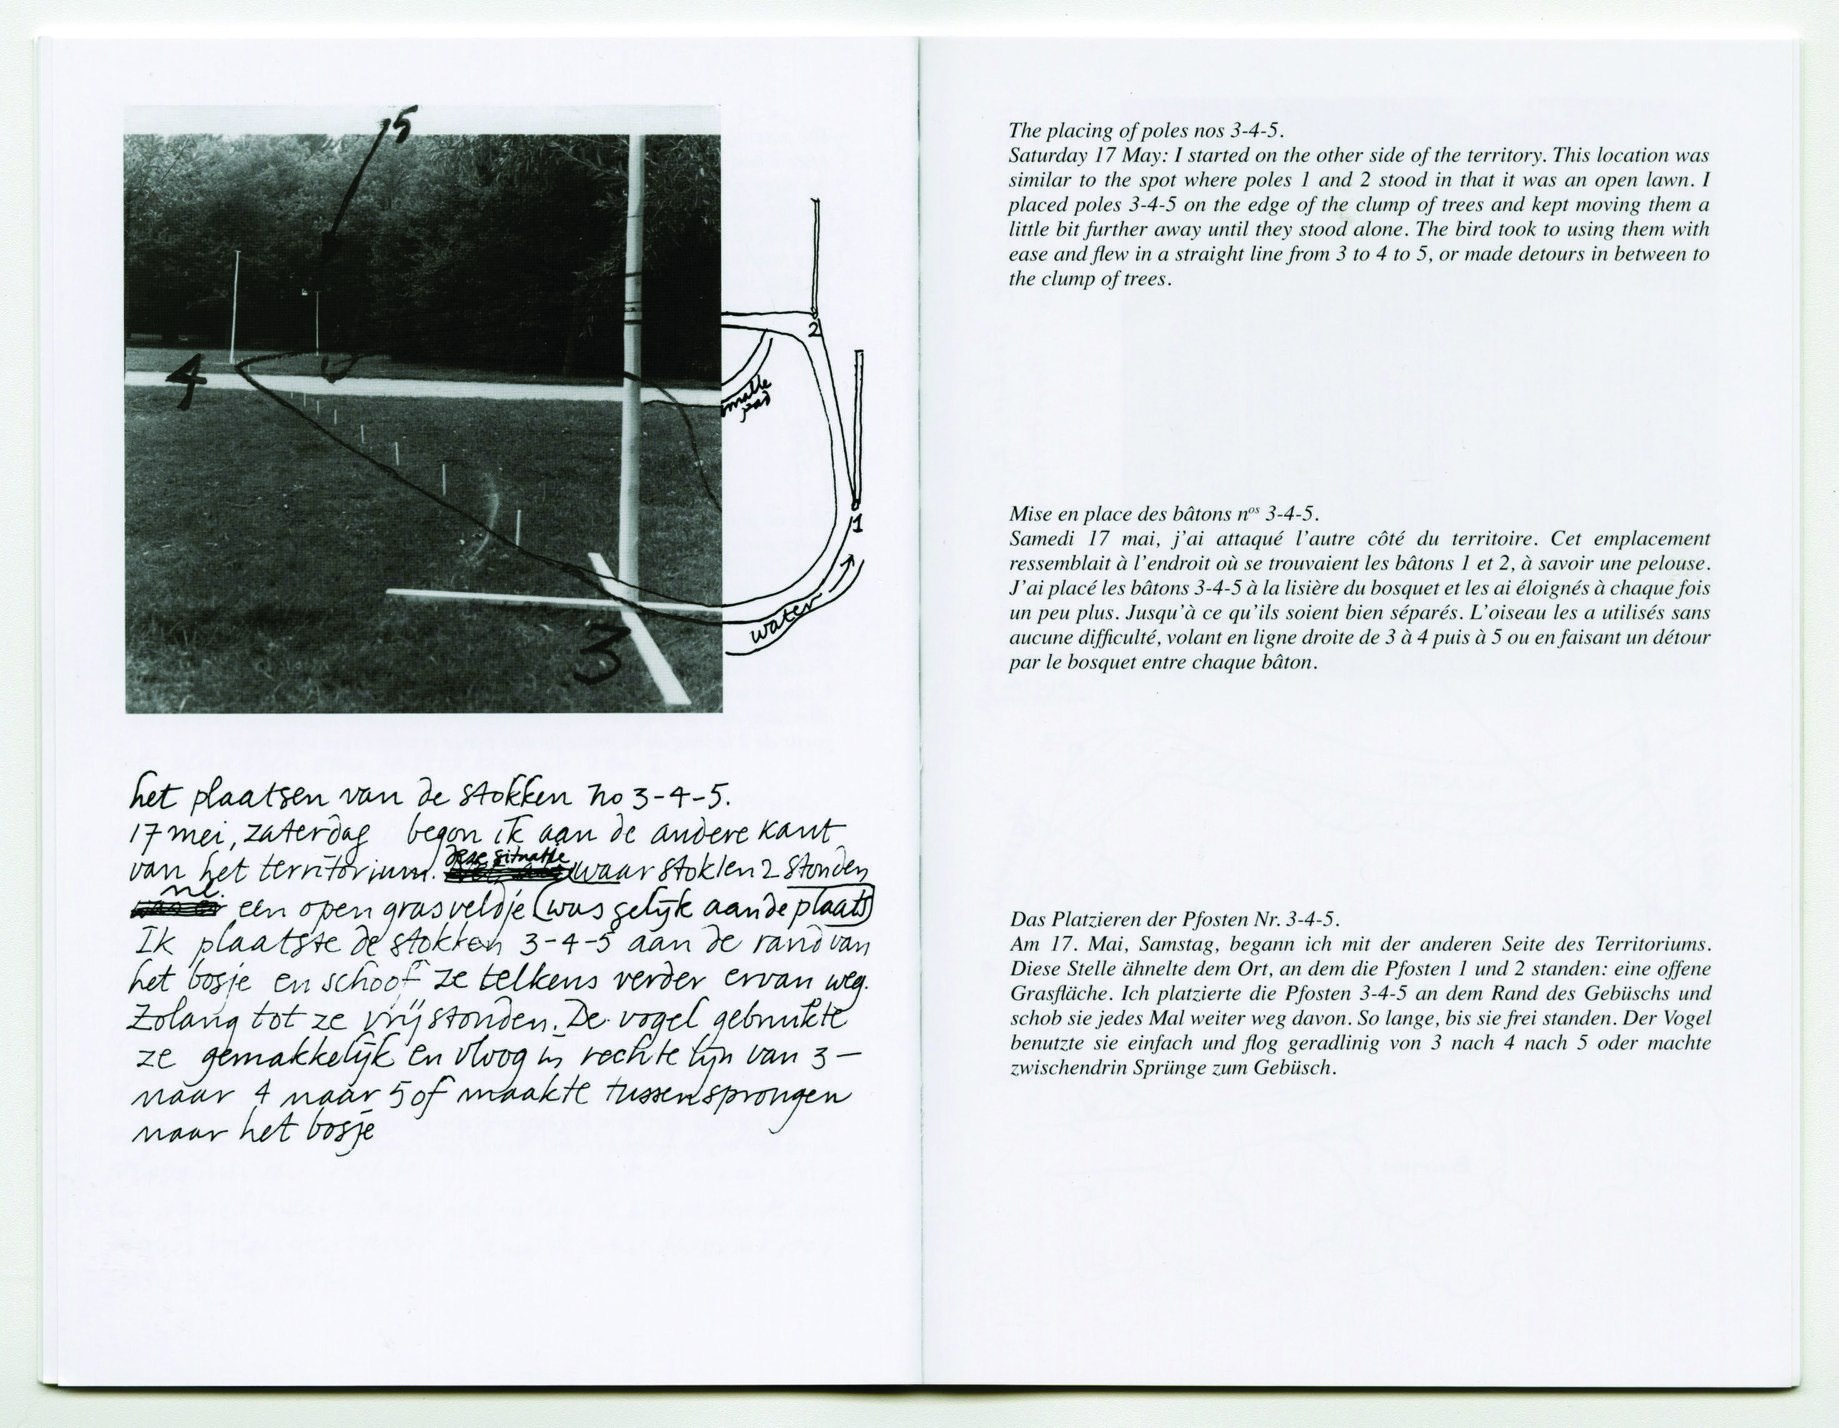 5
4
3
2
smalle
pad
1
water
het plaatsen van de stokken no 3-4-5.
17 mei, zaterdag begon ik aan de andere kant
van het territorium. deze situatie waar stokken 2 stonden
nl. een open grasveldje (was gelijk aan de plaats)
Ik plaatste de stokken 3-4-5 aan de rand van
het bosje en schoof ze telkens verder ervan weg.
Zolang tot ze vrij stonden. De vogel gebruikte
ze gemakkelijk en vloog in rechte lijn van 3-
naar 4 naar 5 of maakte tussensprongen
naar het bosje
The placing of poles nos 3-4-5.
Saturday 17 May: I started on the other side of the territory. This location was
similar to the spot where poles 1 and 2 stood in that it was an open lawn. I
placed poles 3-4-5 on the edge of the clump of trees and kept moving them a
little bit further away until they stood alone. The bird took to using them with
ease and flew in a straight line from 3 to 4 to 5, or made detours in between to
the clump of trees.
Mise en place des bâtons nos 3-4-5.
Samedi 17 mai, j'ai attaqué l'autre côté du territoire. Cet emplacement
ressemblait à l'endroit où se trouvaient les bâtons 1 et 2, à savoir une pelouse.
J'ai placé les bâtons 3-4-5 à la lisière du bosquet et les ai éloignés à chaque fois
un peu plus. Jusqu'à ce qu'ils soient bien séparés. L'oiseau les a utilisés sans
aucune difficulté, volant en ligne droite de 3 à 4 puis à 5 ou en faisant un détour
par le bosquet entre chaque bâton.
Das Platzieren der Pfosten Nr. 3-4-5.
Am 17. Mai, Samstag, begann ich mit der anderen Seite des Territoriums.
Diese Stelle ähnelte dem Ort, an dem die Pfosten 1 und 2 standen: eine offene
Grasfläche. Ich platzierte die Pfosten 3-4-5 an dem Rand des Gebüschs und
schob sie jedes Mal weiter weg davon. So lange, bis sie frei standen. Der Vogel
benutzte sie einfach und flog geradlinig von 3 nach 4 nach 5 oder machte
zwischendrin Sprünge zum Gebüsch.